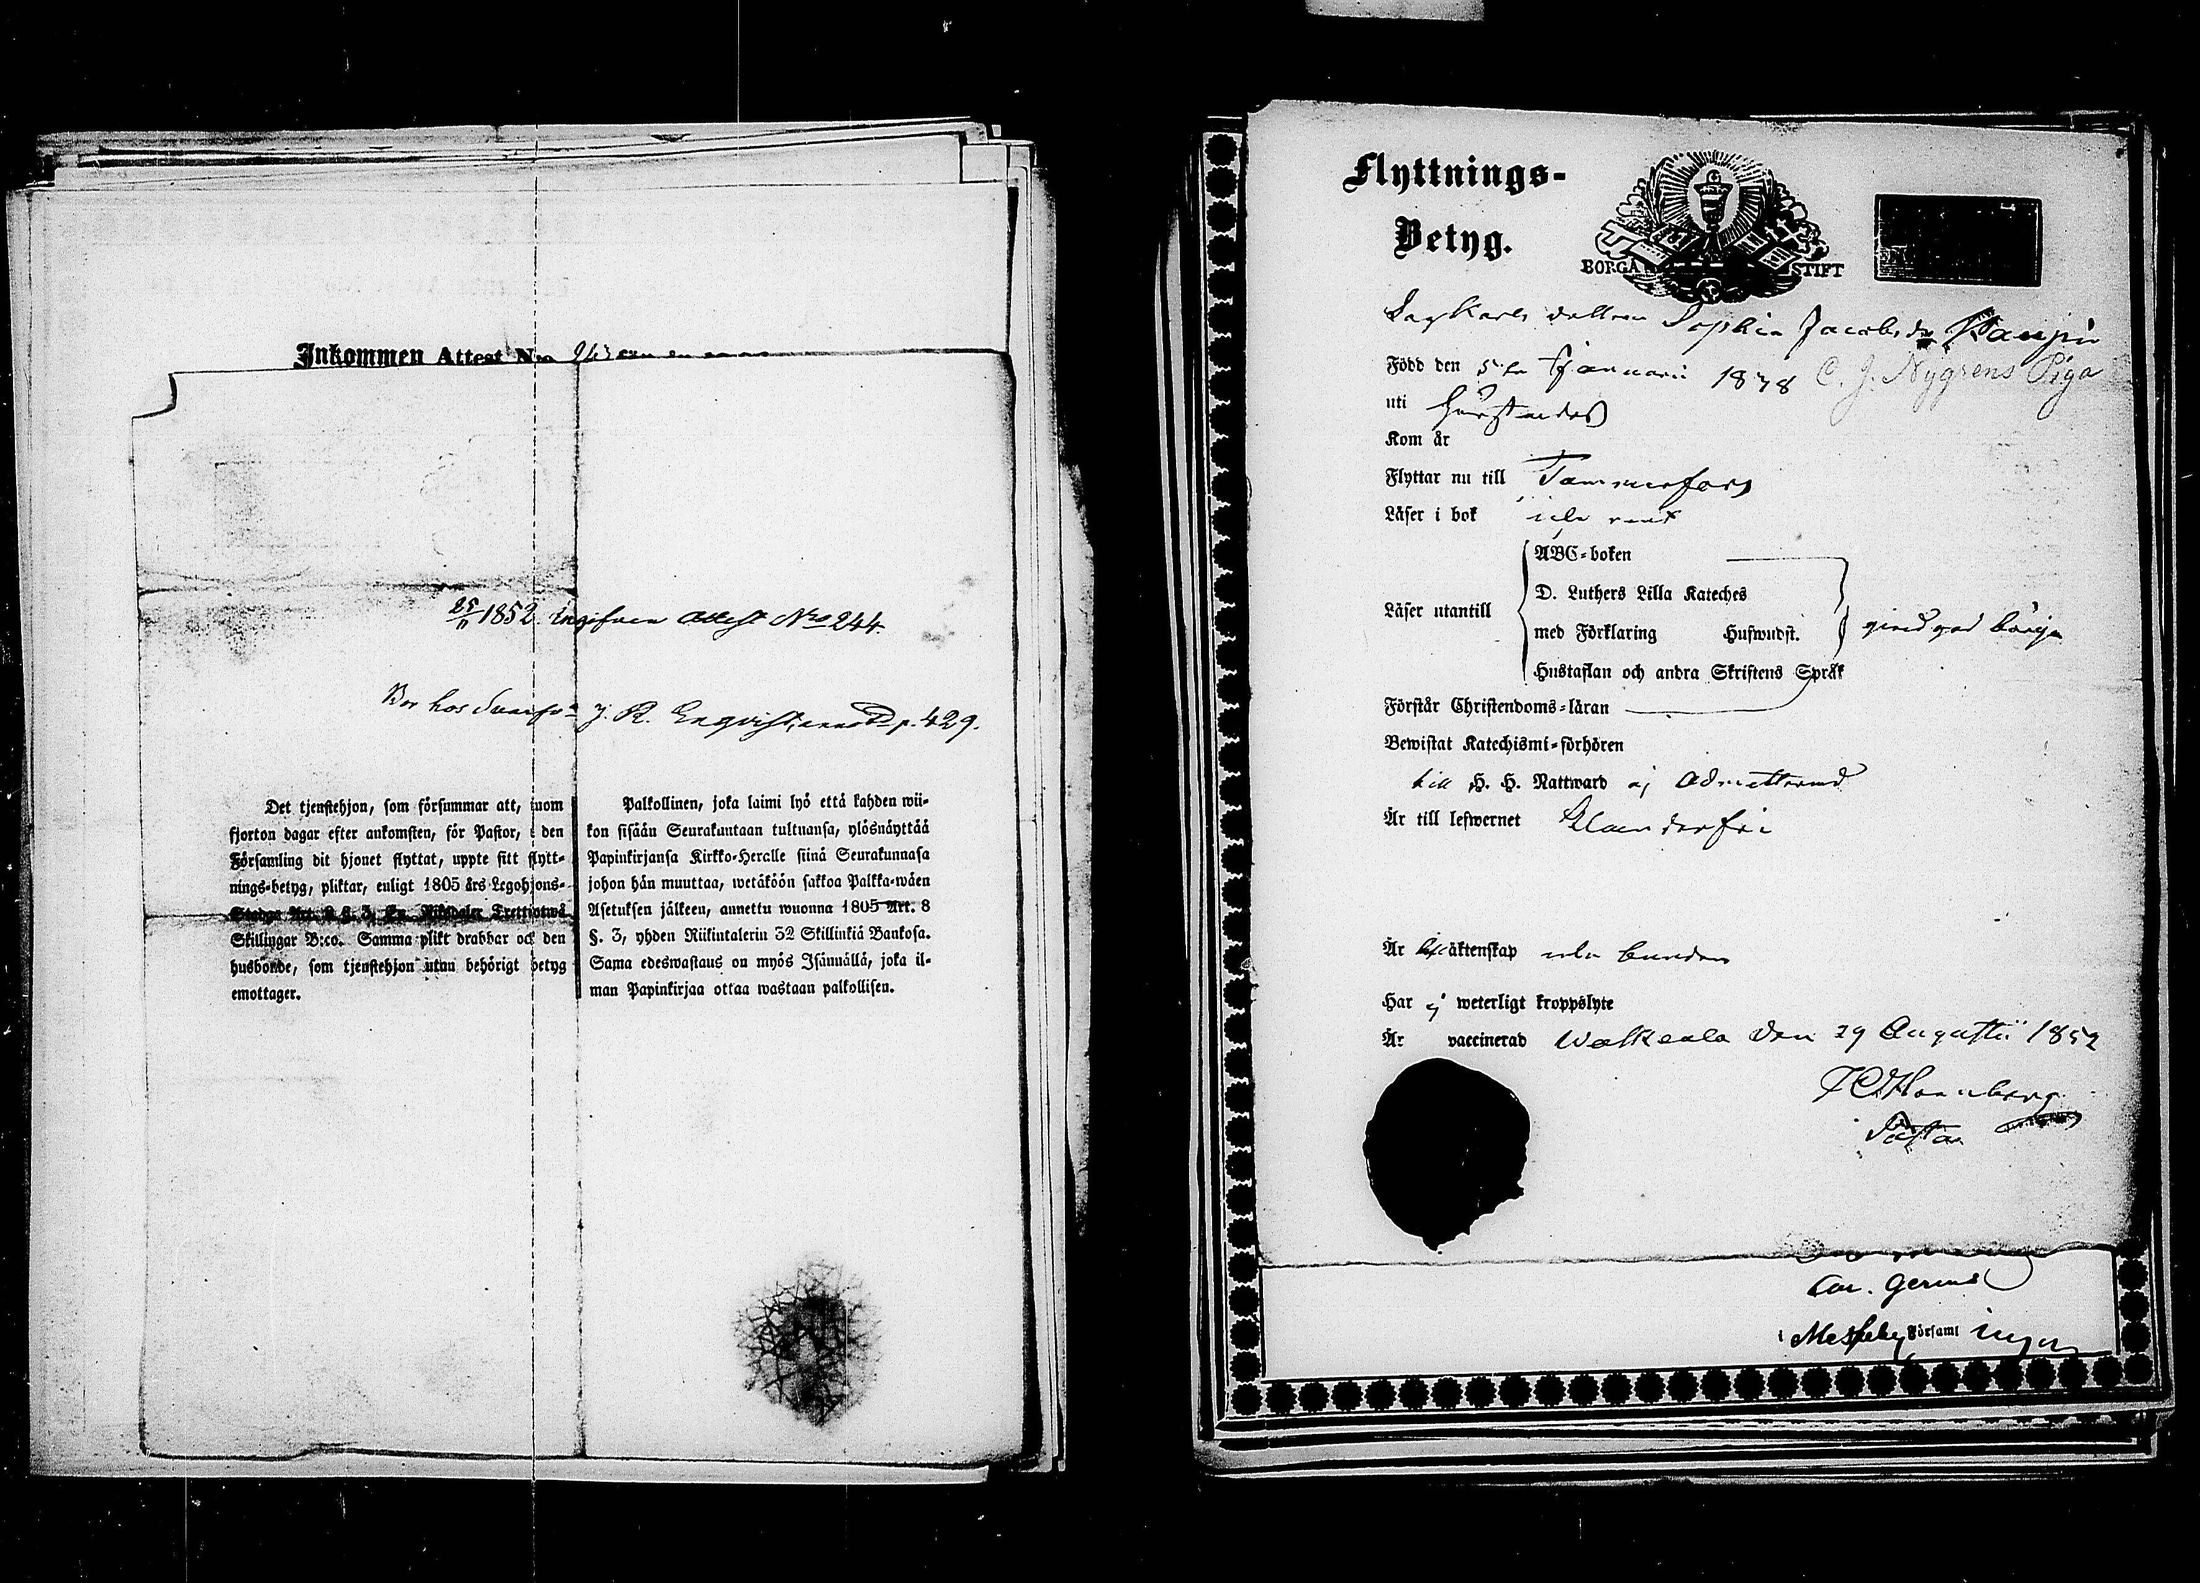 Inkommen Attest N:o 243
25/11 1852. Ingifven Attest No 244.
Bor hos J. R. Enqvist, p. 429.
Det tjenstehjon, som försummar att, inom
fjorton dagar efter ankomsten, för Pastor, i den
Församling dit hjonet flyttat, uppte sitt flytt-
nings-betyg, pliktar, enligt 1805 års Legohjons-
Stadga Art. 8 §. 3, En Riksdaler Trettiotwå
Skillingar B:co. Samma plikt drabbar ock den
husbonde, som tjenstehjon utan behörigt betyg
emottager.
Palkollinen, joka laimi lyö että kahden wii-
kon sisään Seurakuntaan tultuansa, ylösnäyttää
Papinkirjansa Kirkko-Heralle siinä Seurakunnasa
johon hän muuttaa, wetäköön sakkoa Palkka-wäen
Asetuksen jälkeen, annettu wuonna 1805 Art. 8
§. 3, yhden Riikintalerin 32 Skillinkiä Bankosa.
Sama edeswastaus on myös Isännällä, joka il-
man Papinkirjaa ottaa wastaan palkollisen.
Flyttnings-
Betyg.
BORGÅ STIFT
dottren Sophia Jacobsdr Kaupi
Född den 5te Januari 1838 C. J. Nygrens Piga
uti
Kom år
Flyttar nu till Tammerfors
Läser i bok rent
ABC-boken
D. Luthers Lilla Kateches
Läser utantill
med Förklaring Huswudst.
Hustaflan och andra Skriftens Språk
Förstår Christendoms-läran
Bewistat Katechismi-förhören
till H. H. Nattward ej admitterad
Är till lefwernet klanderfri
Är till äktenskap obunden
Har ej weterligt kroppslyte
Är vaccinerad Walkeala den 29 Augusti 1852
i Messuby Församl